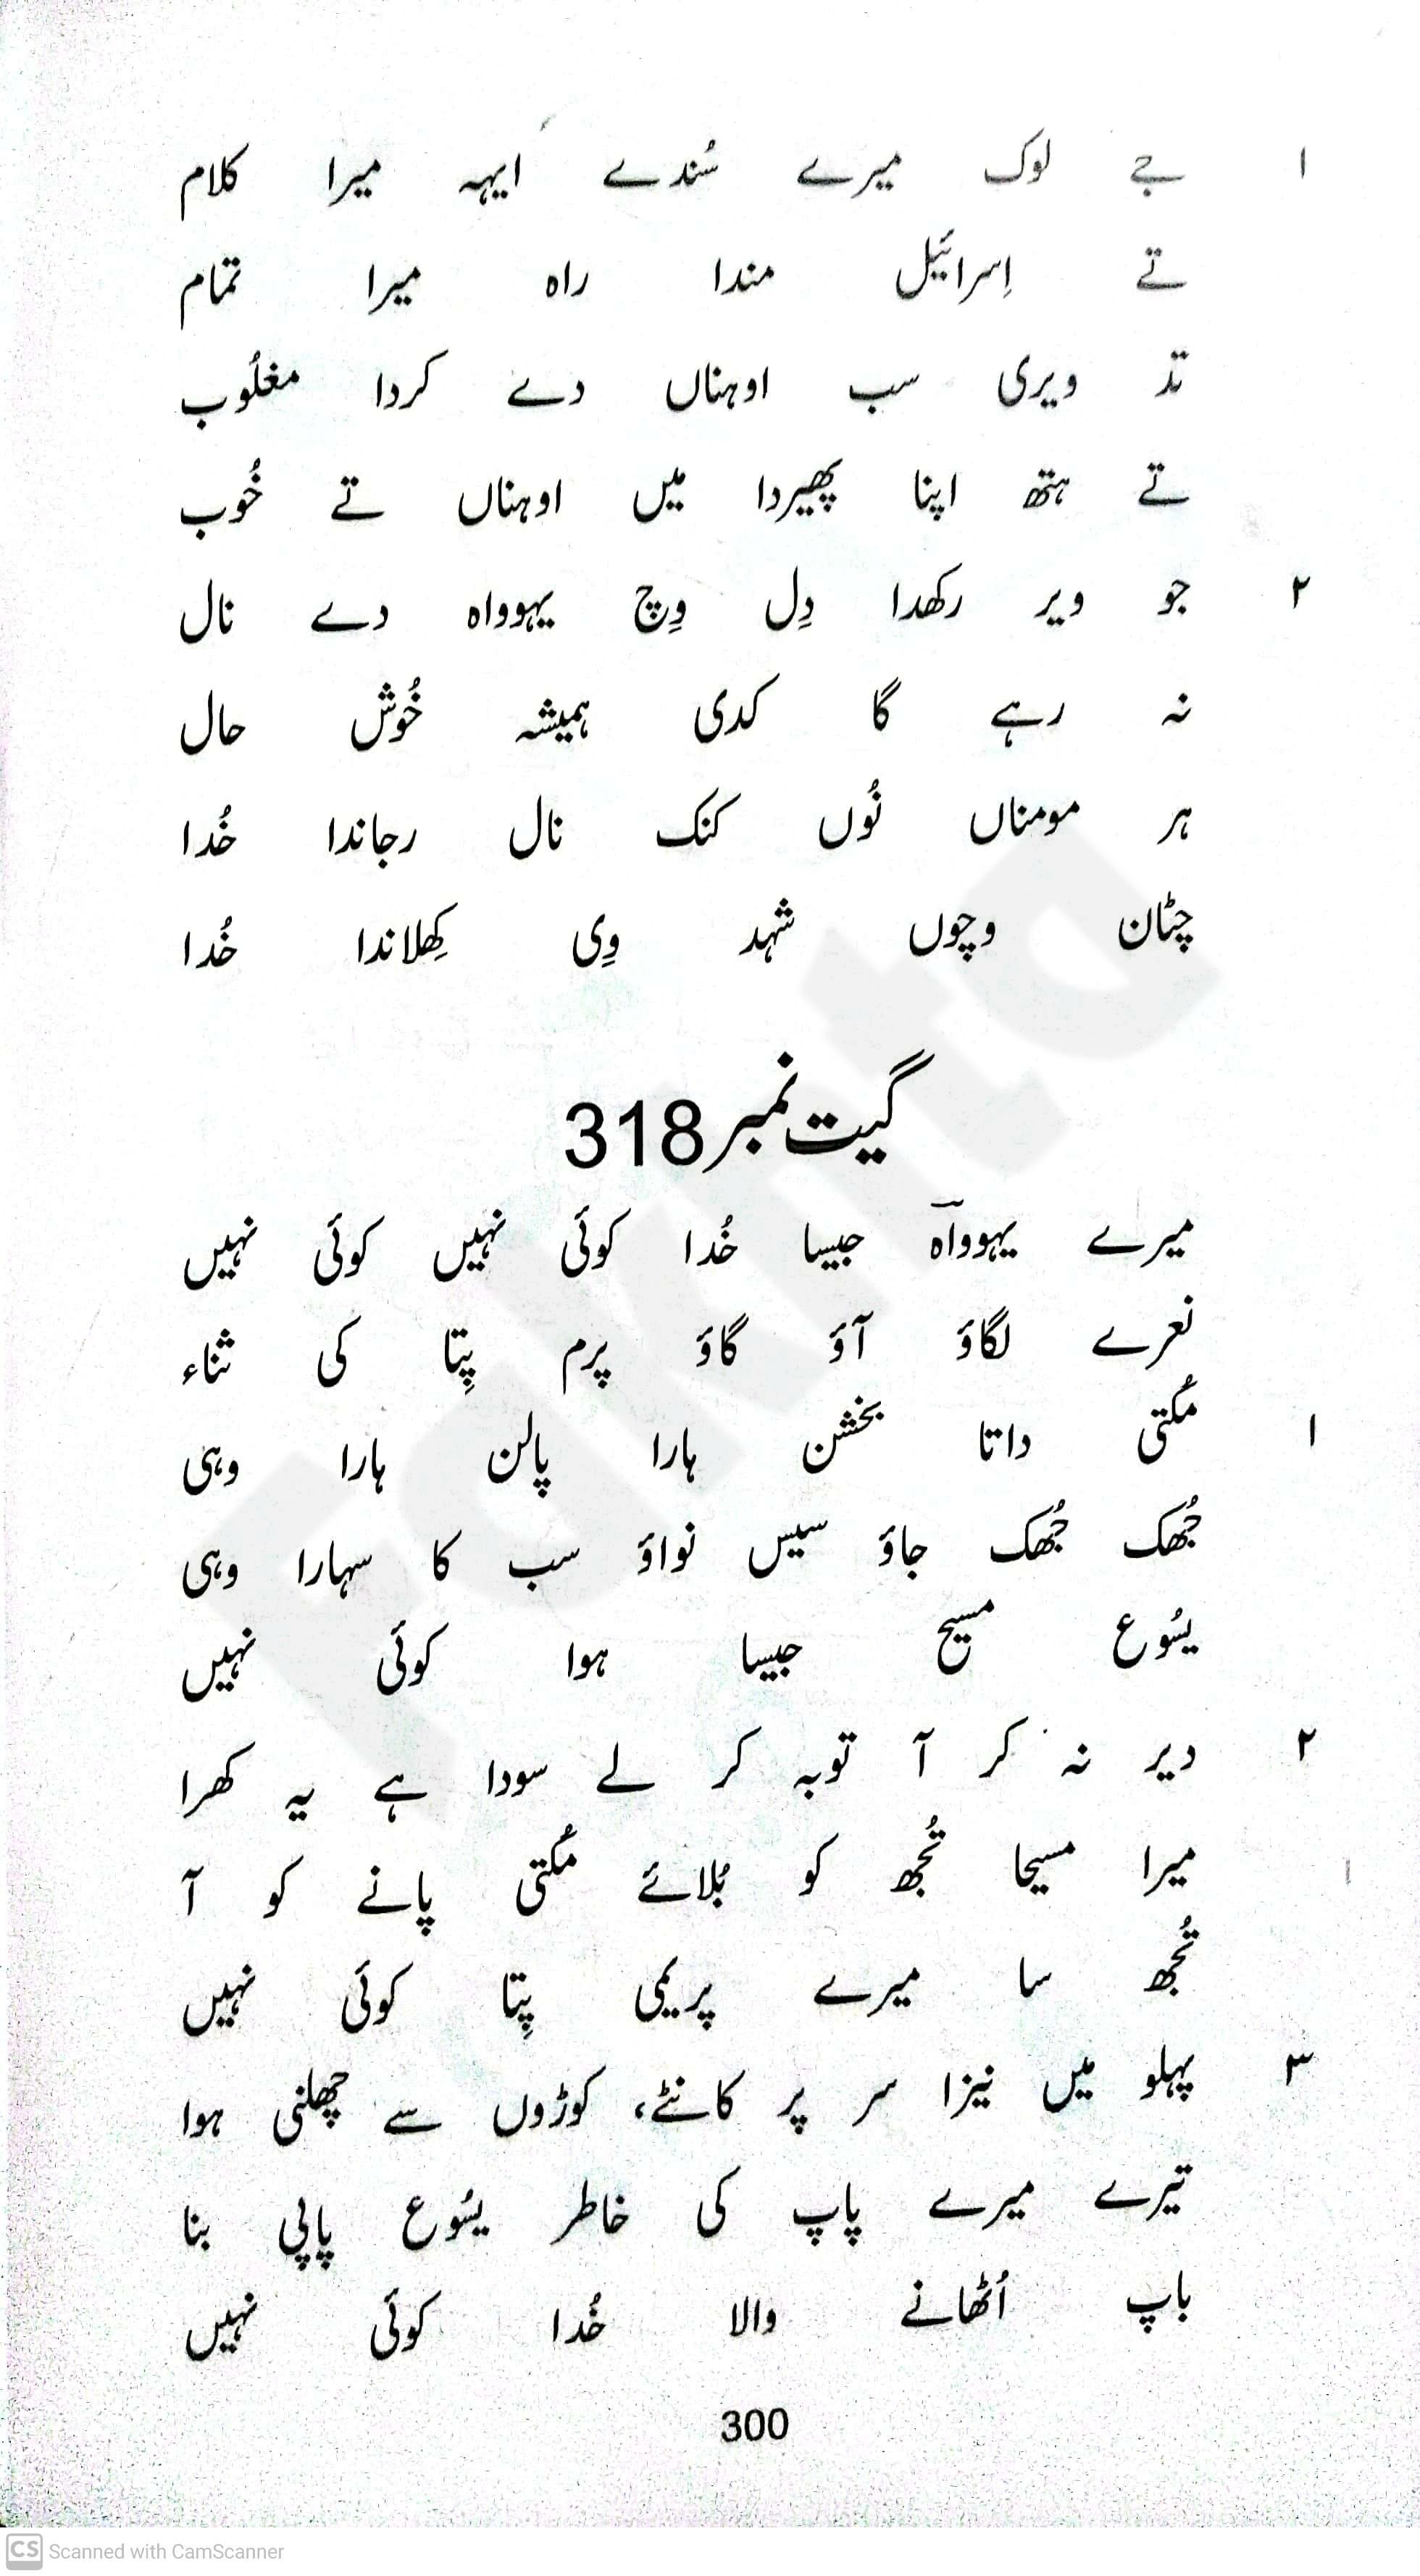 ۱ جے لوک میرے سُندے ایہہ میرا کلام
تے اِسرائیل مندا راہ میرا تمام
تد ویری سب اوہناں دے کردا مغلُوب
تے ہتھ اپنا پھیردا میں اوہناں تے خُوب
۲ جو ویر رکھدا دِل وِچ یہوواہ دے نال
نہ رہے گا کدی ہمیشہ خُوش حال
ہر مومناں نُوں کنک نال رجاندا خُدا
چٹان وچوں شہد وِی کِھلاندا خُدا
گیت نمبر 318
میرے یہوواہ جیسا خُدا کوئی نہیں کوئی نہیں
نعرے لگاؤ آؤ گاؤ پرم پِتا کی ثناء
۱ مُکتی داتا بخشن ہارا پالن ہارا وہی
جُھک جُھک جاؤ سیس نواؤ سب کا سہارا وہی
یسُوع مسیح جیسا ہوا کوئی نہیں
۲ دیر نہ کر آ توبہ کر لے سودا ہے یہ کھرا
میرا مسیحا تُجھ کو بُلائے مُکتی پانے کو آ
تُجھ سا میرے پریمی پِتا کوئی نہیں
۳ پہلو میں نیزا سر پر کانٹے، کوڑوں سے چھلنی ہوا
تیرے میرے پاپ کی خاطر یسُوع پاپی بنا
باپ اُٹھانے والا خُدا کوئی نہیں
300
Fakhta
CS Scanned with CamScanner